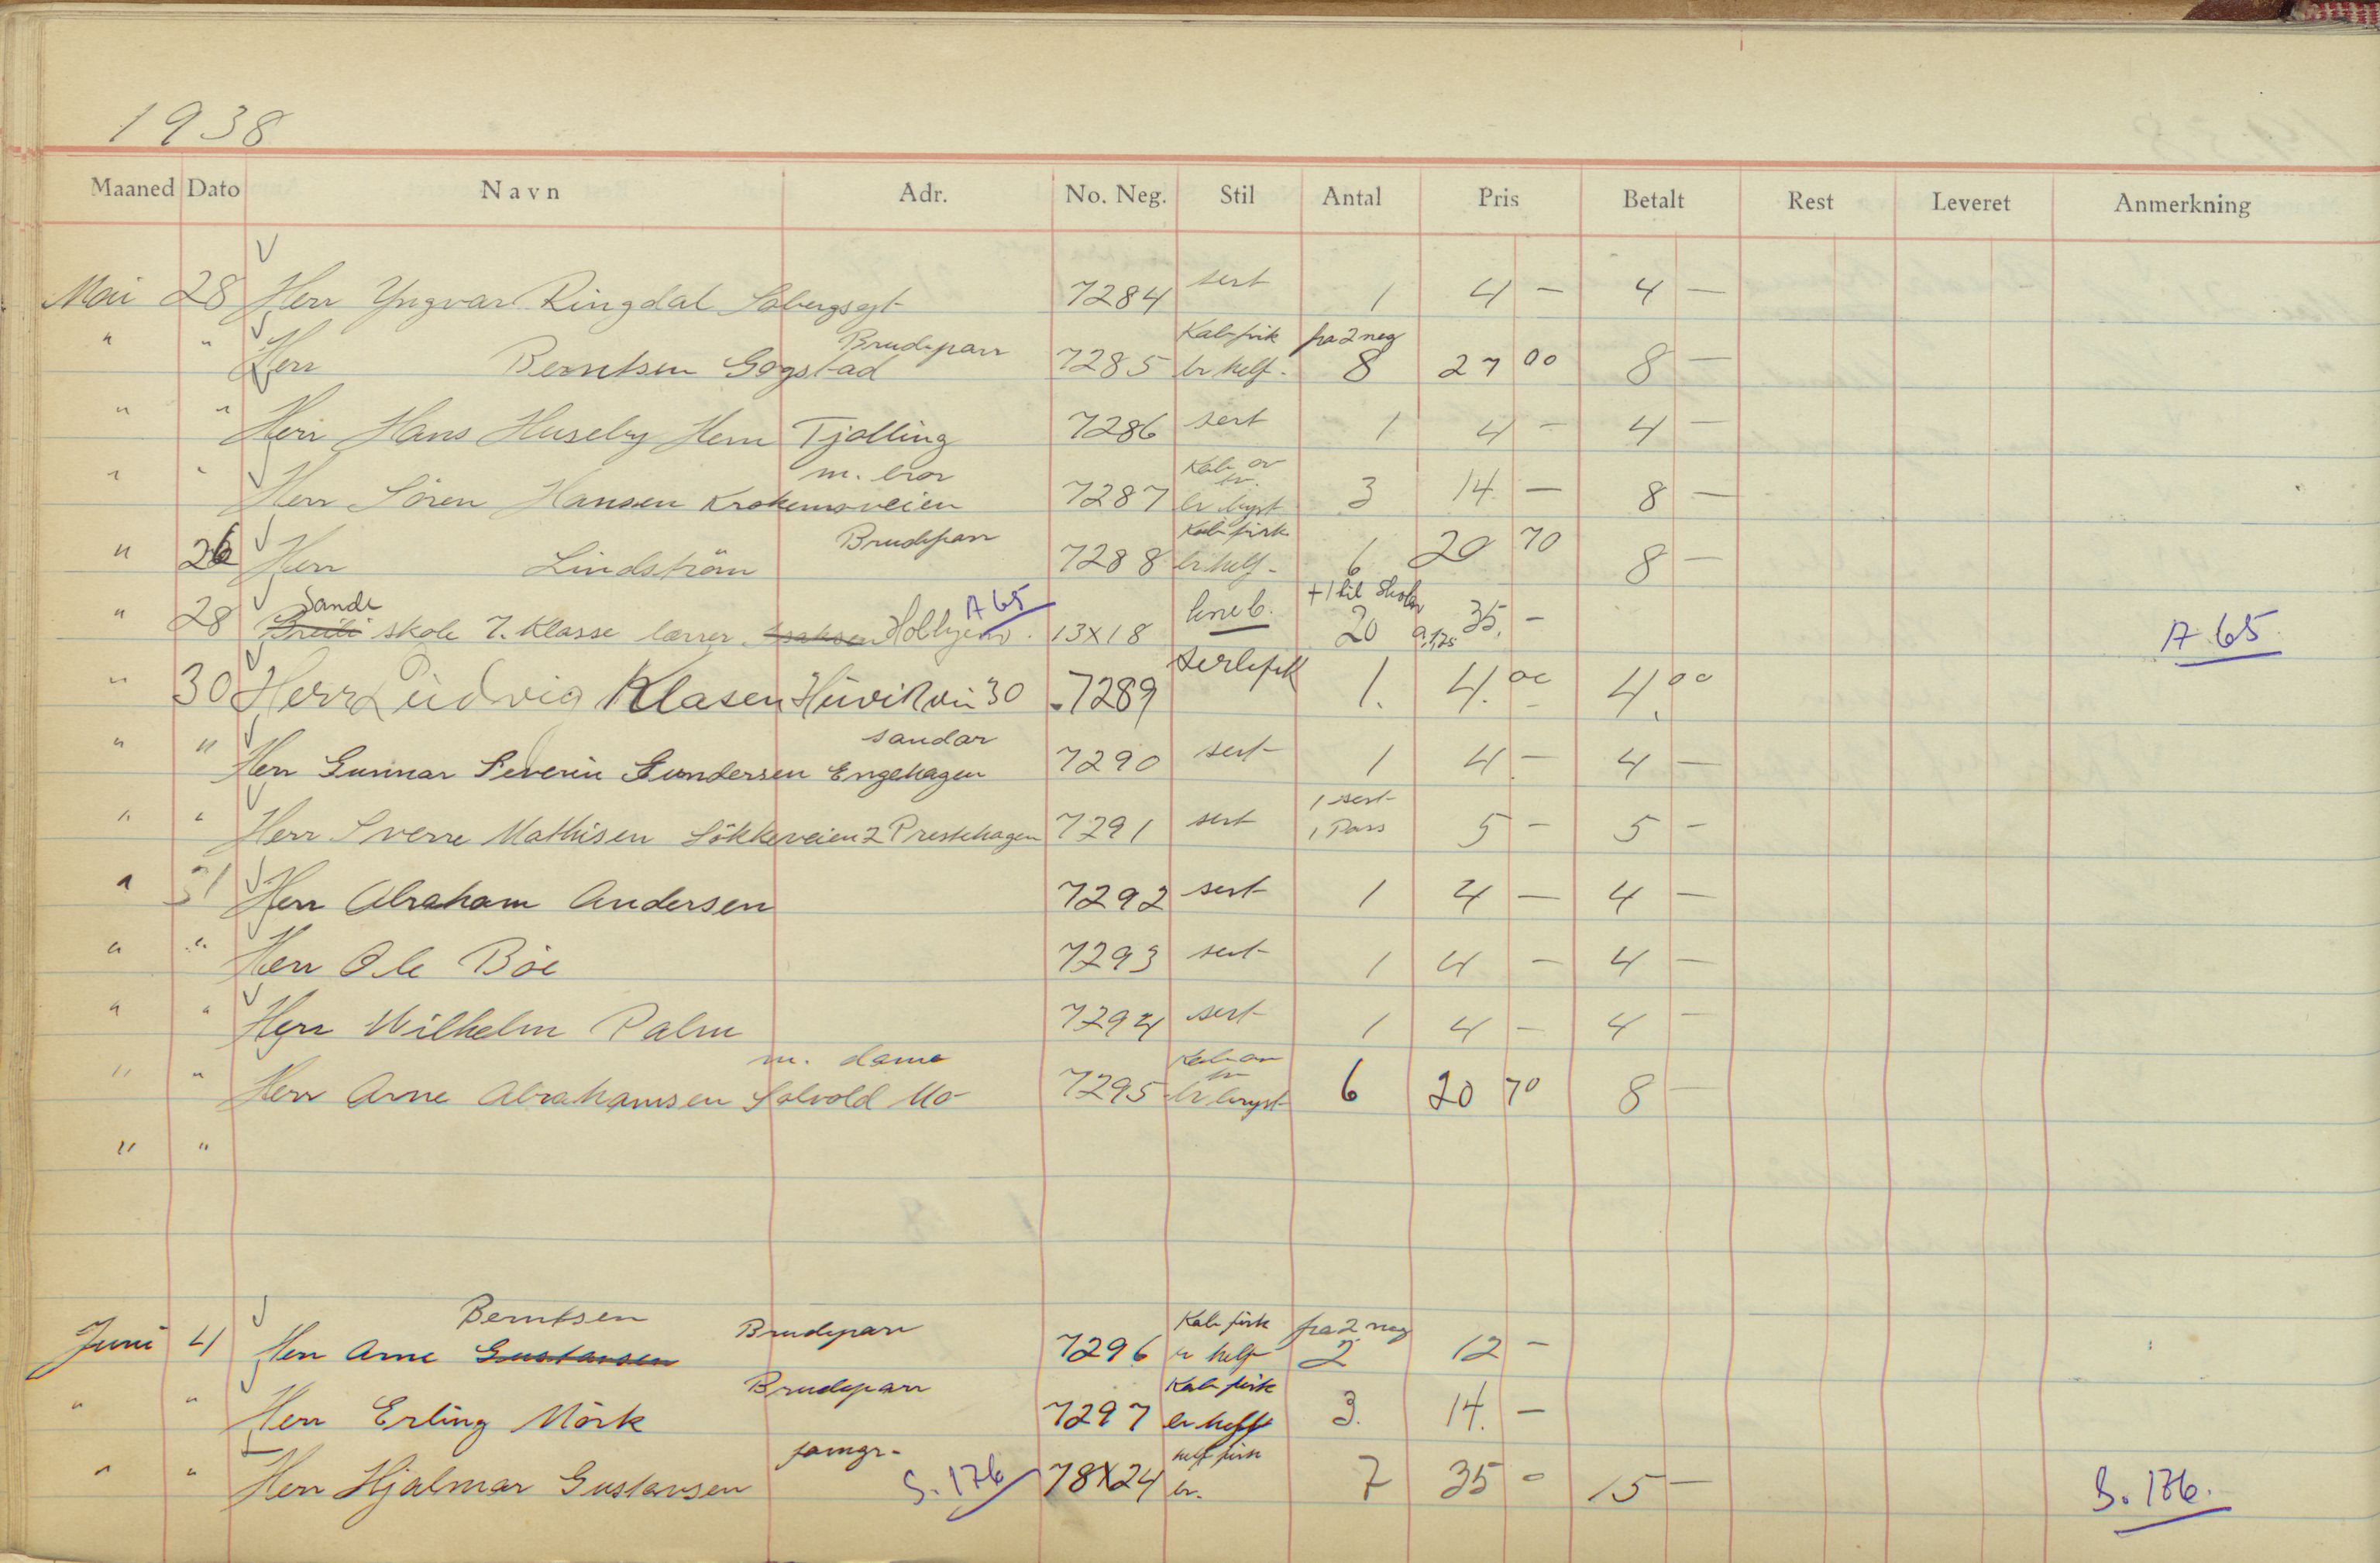 1938
Maaned Dato Navn Adr. No. Neg. Stil Antal Pris Betalt Rest Leveret Anmerkning
Mai 28 Herr Yngvar Ringdal 7284 sert 1 4 — 4 —
Brudepar Kab fra 2 neg
" " Herr Berntsen Gogstad 7285 br helf. 8 27 00 8 —
" " Herr Hans Huseby Hem Tjølling 7286 sert 1 4 — 4 —
m. bror Kab
" " Herr Sören Hansen Krokemoveien 7287 br bryst 3 14 — 8 —
Brudepar Kab
" 26 Herr Lindström 7288 br helf - 6 20 70 8 —
Sande A 65 +1 til Skolen
" 28 skole 7. Klasse lærer 13X18 kneb. 20 35. — A 65
" 30 Herr Ludvig Klasen 30 7289 1. 4.00 4.00
sandar
" " Herr Gunnar Severin Gundersen Engehagen 7290 sert 1 4 — 4 —
1 sert
" " Herr Sverre Mathisen Lökkeveien 2 Prestehagen 7291 sert 1 Pass 5 — 5 —
" 31 Herr Abraham Andersen 7292 sert 1 4 — 4 —
" " Herr Ole Böe 7293 sert 1 4 — 4 —
" " Herr Wilhelm Palm 7294 sert 1 4 — 4 —
m. dame Kab
" " Herr Arne Abrahamsen Solvold Mo 7295 br bryst 6 20 70 8 —
" "
Berntsen Brudepar Kab fra 2 neg
Juni 4 Herr Arne Gustavsen 7296 br helf 2 12 —
Brudepar Kab
" " Herr Erling Mörk 7297 br helf 3. 14. —
famgr. helf
" " Herr Hjalmar Gustavsen S. 176 18X24 br. 7 35 — 15 — S. 176.